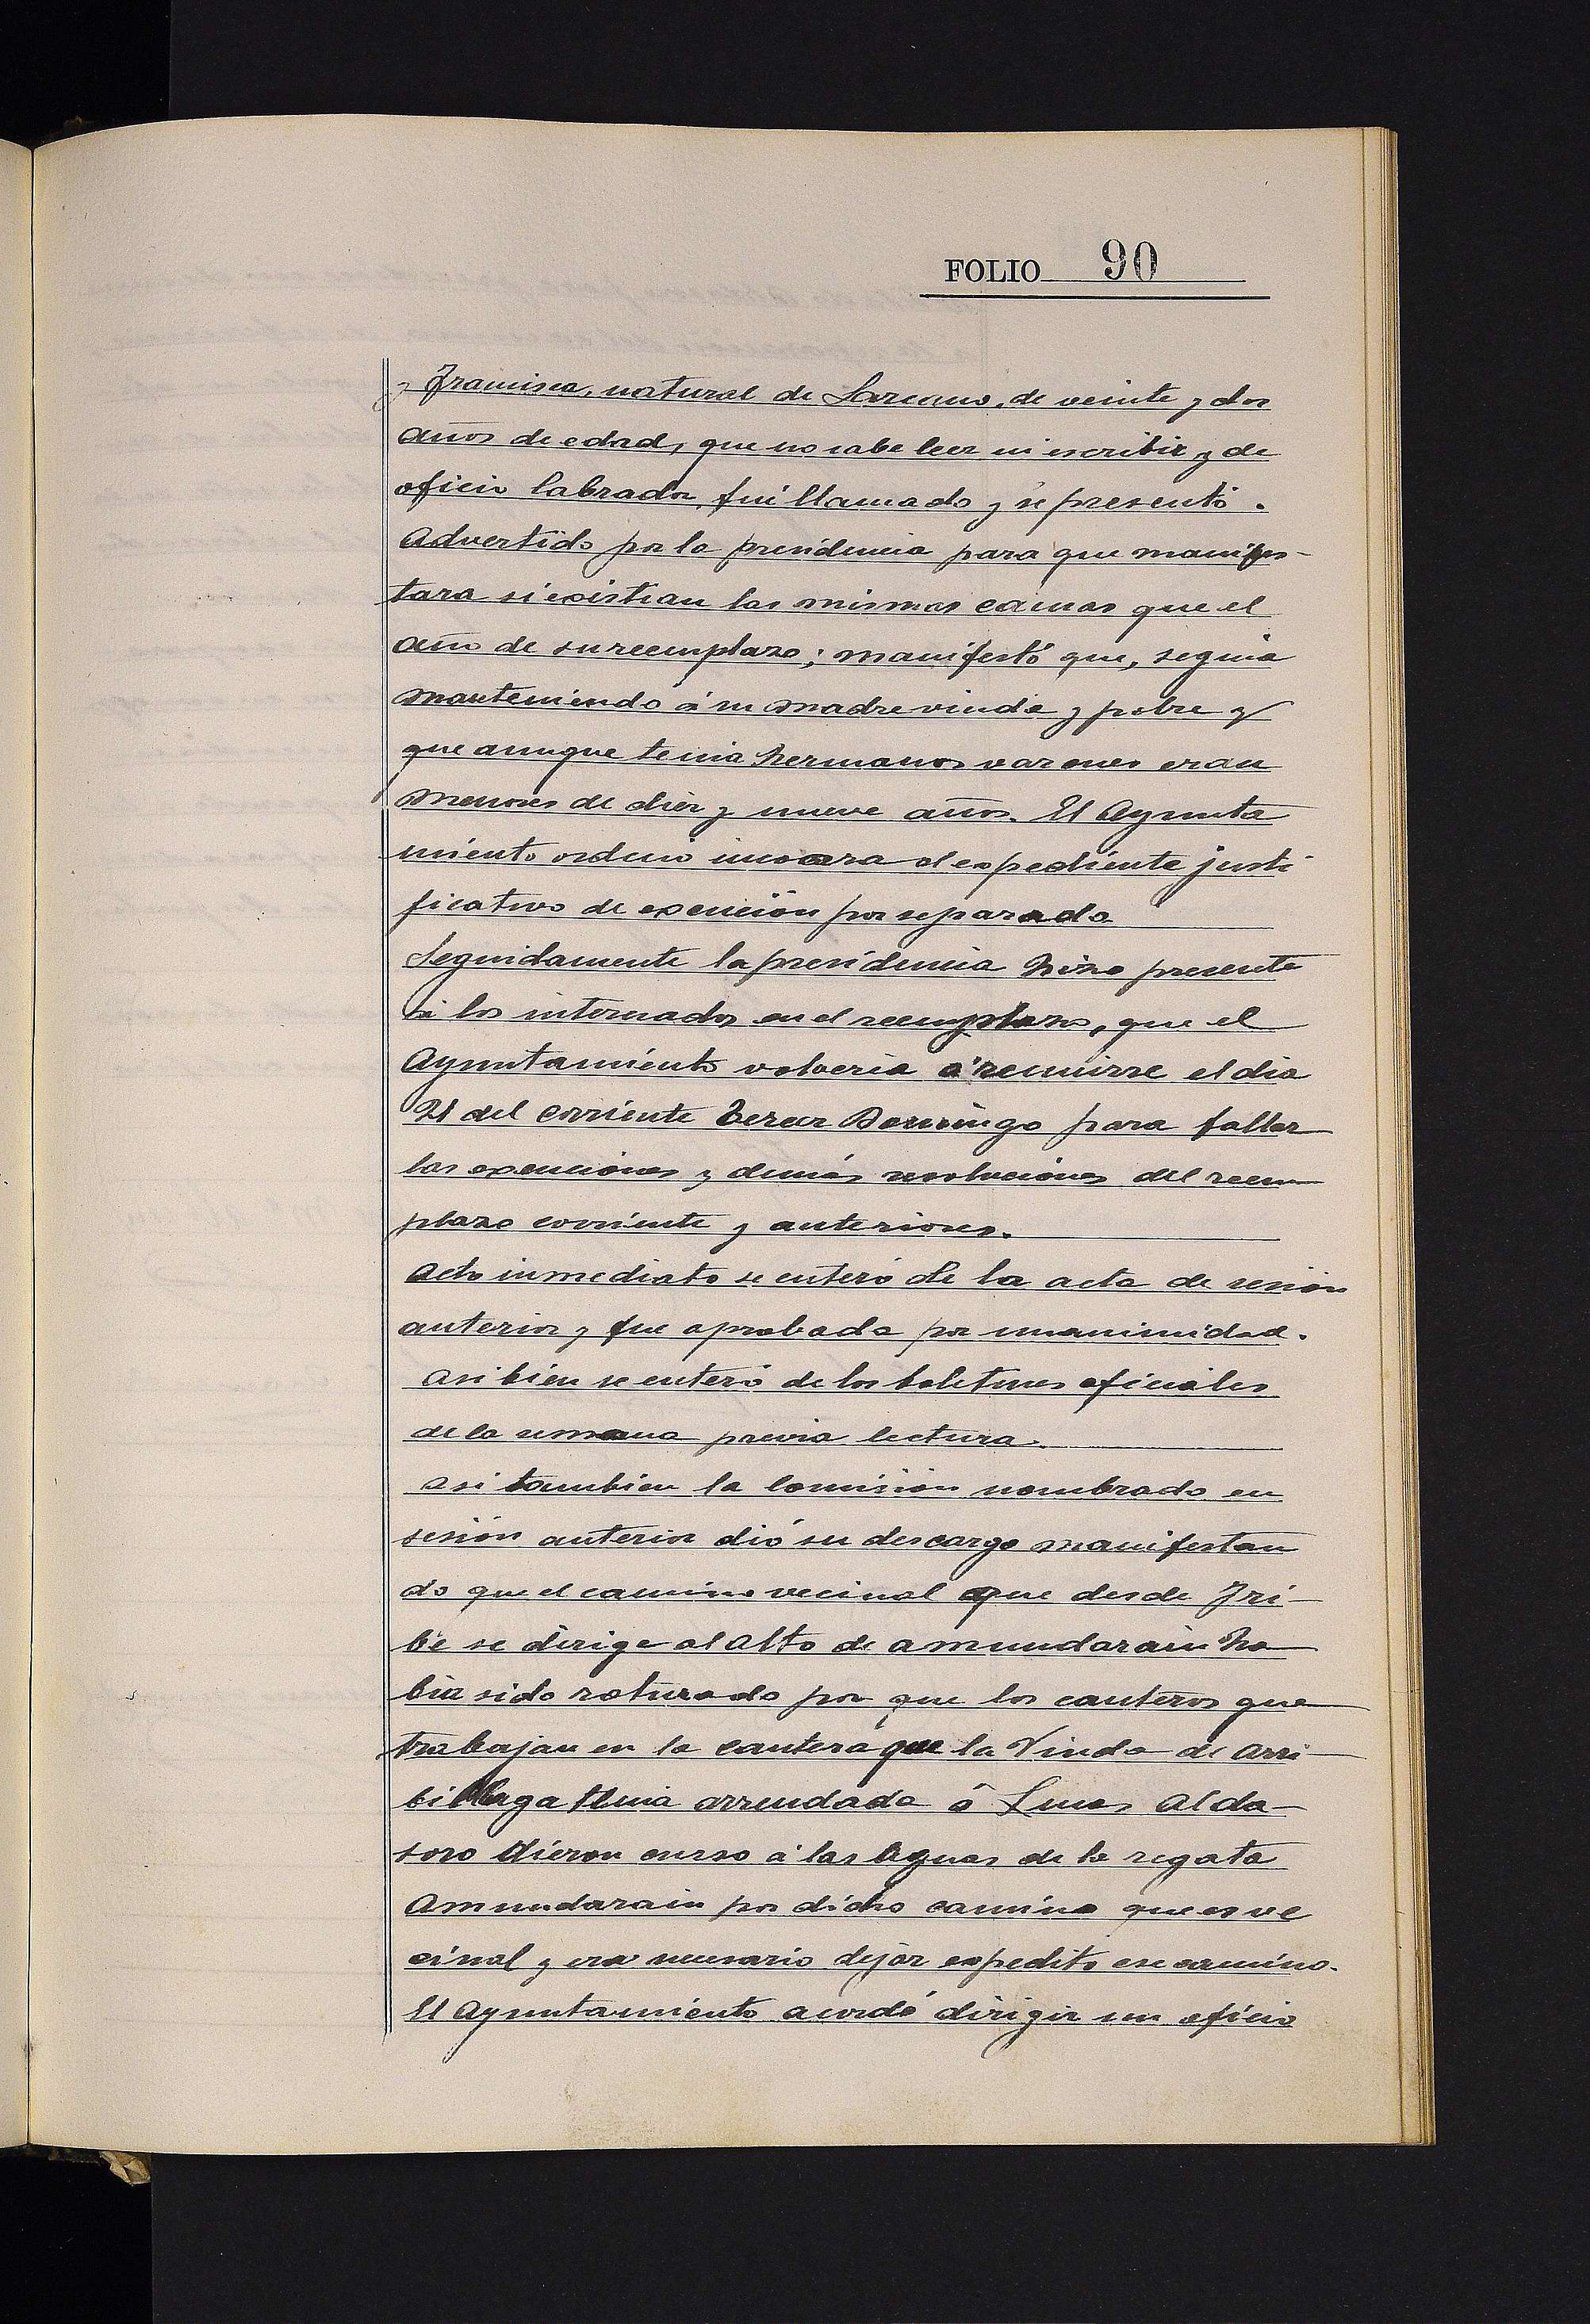 FOLIO 90
y Francisca, natural de Lazcano, de veinte y dos
años de edad, que no sabe leer ni escribir y de
oficio labrador, fué llamado y se presentó.
Advertido por la presidencia para que manifes-
tara si existian las mismas causas que el
año de su reemplazo; manifestó que, seguia
manteniendo á su madre viuda y pobre y
que aunque tenia hermanos varones eran
menores de diez y nueve años. El Ayunta
miento ordenó incoara el expediente justi
ficativo de exención por separado
Seguidamente la presidencia hizo presente
á los interesados en el reemplazo, que el
Ayuntamiento volveria á reunirse el dia
21 del corriente tercer Domingo para fallar
las exenciones y demás resoluciones del reem
plazo corriente y anteriores.
Acto inmediato se enteró de la acta de sesión
anterior y fue aprobada por unanimidad.
Asi bien se enteró de los boletines oficiales
de la semana previa lectura.
Asi tambien la Comisión nombrada en
sesión anterior dió su descargo manifestan
do que el camino vecinal que desde Iri-
be se dirige al alto de Amundarain ha
bia sido roturado por que los canteros que
trabajan en la cantera que la Viuda de Arri-
billaga tenia arrendada á Lucas Alda-
soro dieron curso á las aguas de la regata
Amundarain por dicho camino que es ve
cinal y era necesario dejar expedito ese camino.
El Ayuntamiento acordó dirigir un oficio